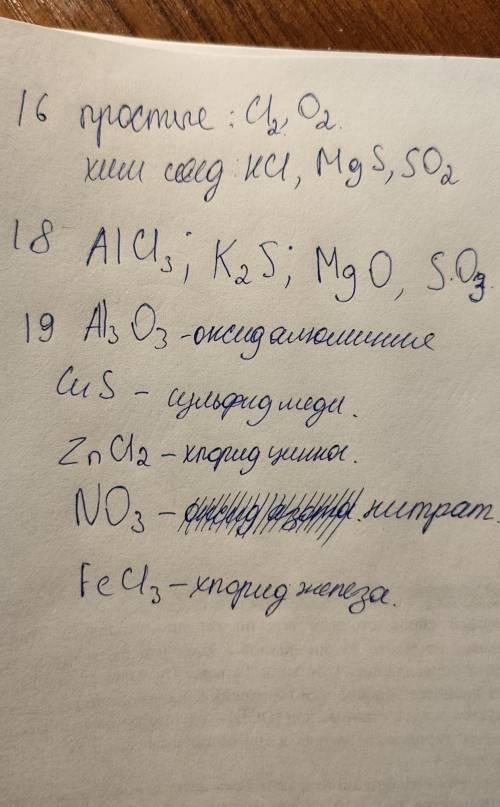 16 простые: Cl2, O2.
хим соед: HCl, MgS, SO2
18 AlCl3; K2S; MgO, SO3.
19 Al3O3 - оксид алюминия
CuS - сульфид меди.
ZnCl2 - хлорид цинка.
NO3 - оксид азота. нитрат.
FeCl3 - хлорид железа.